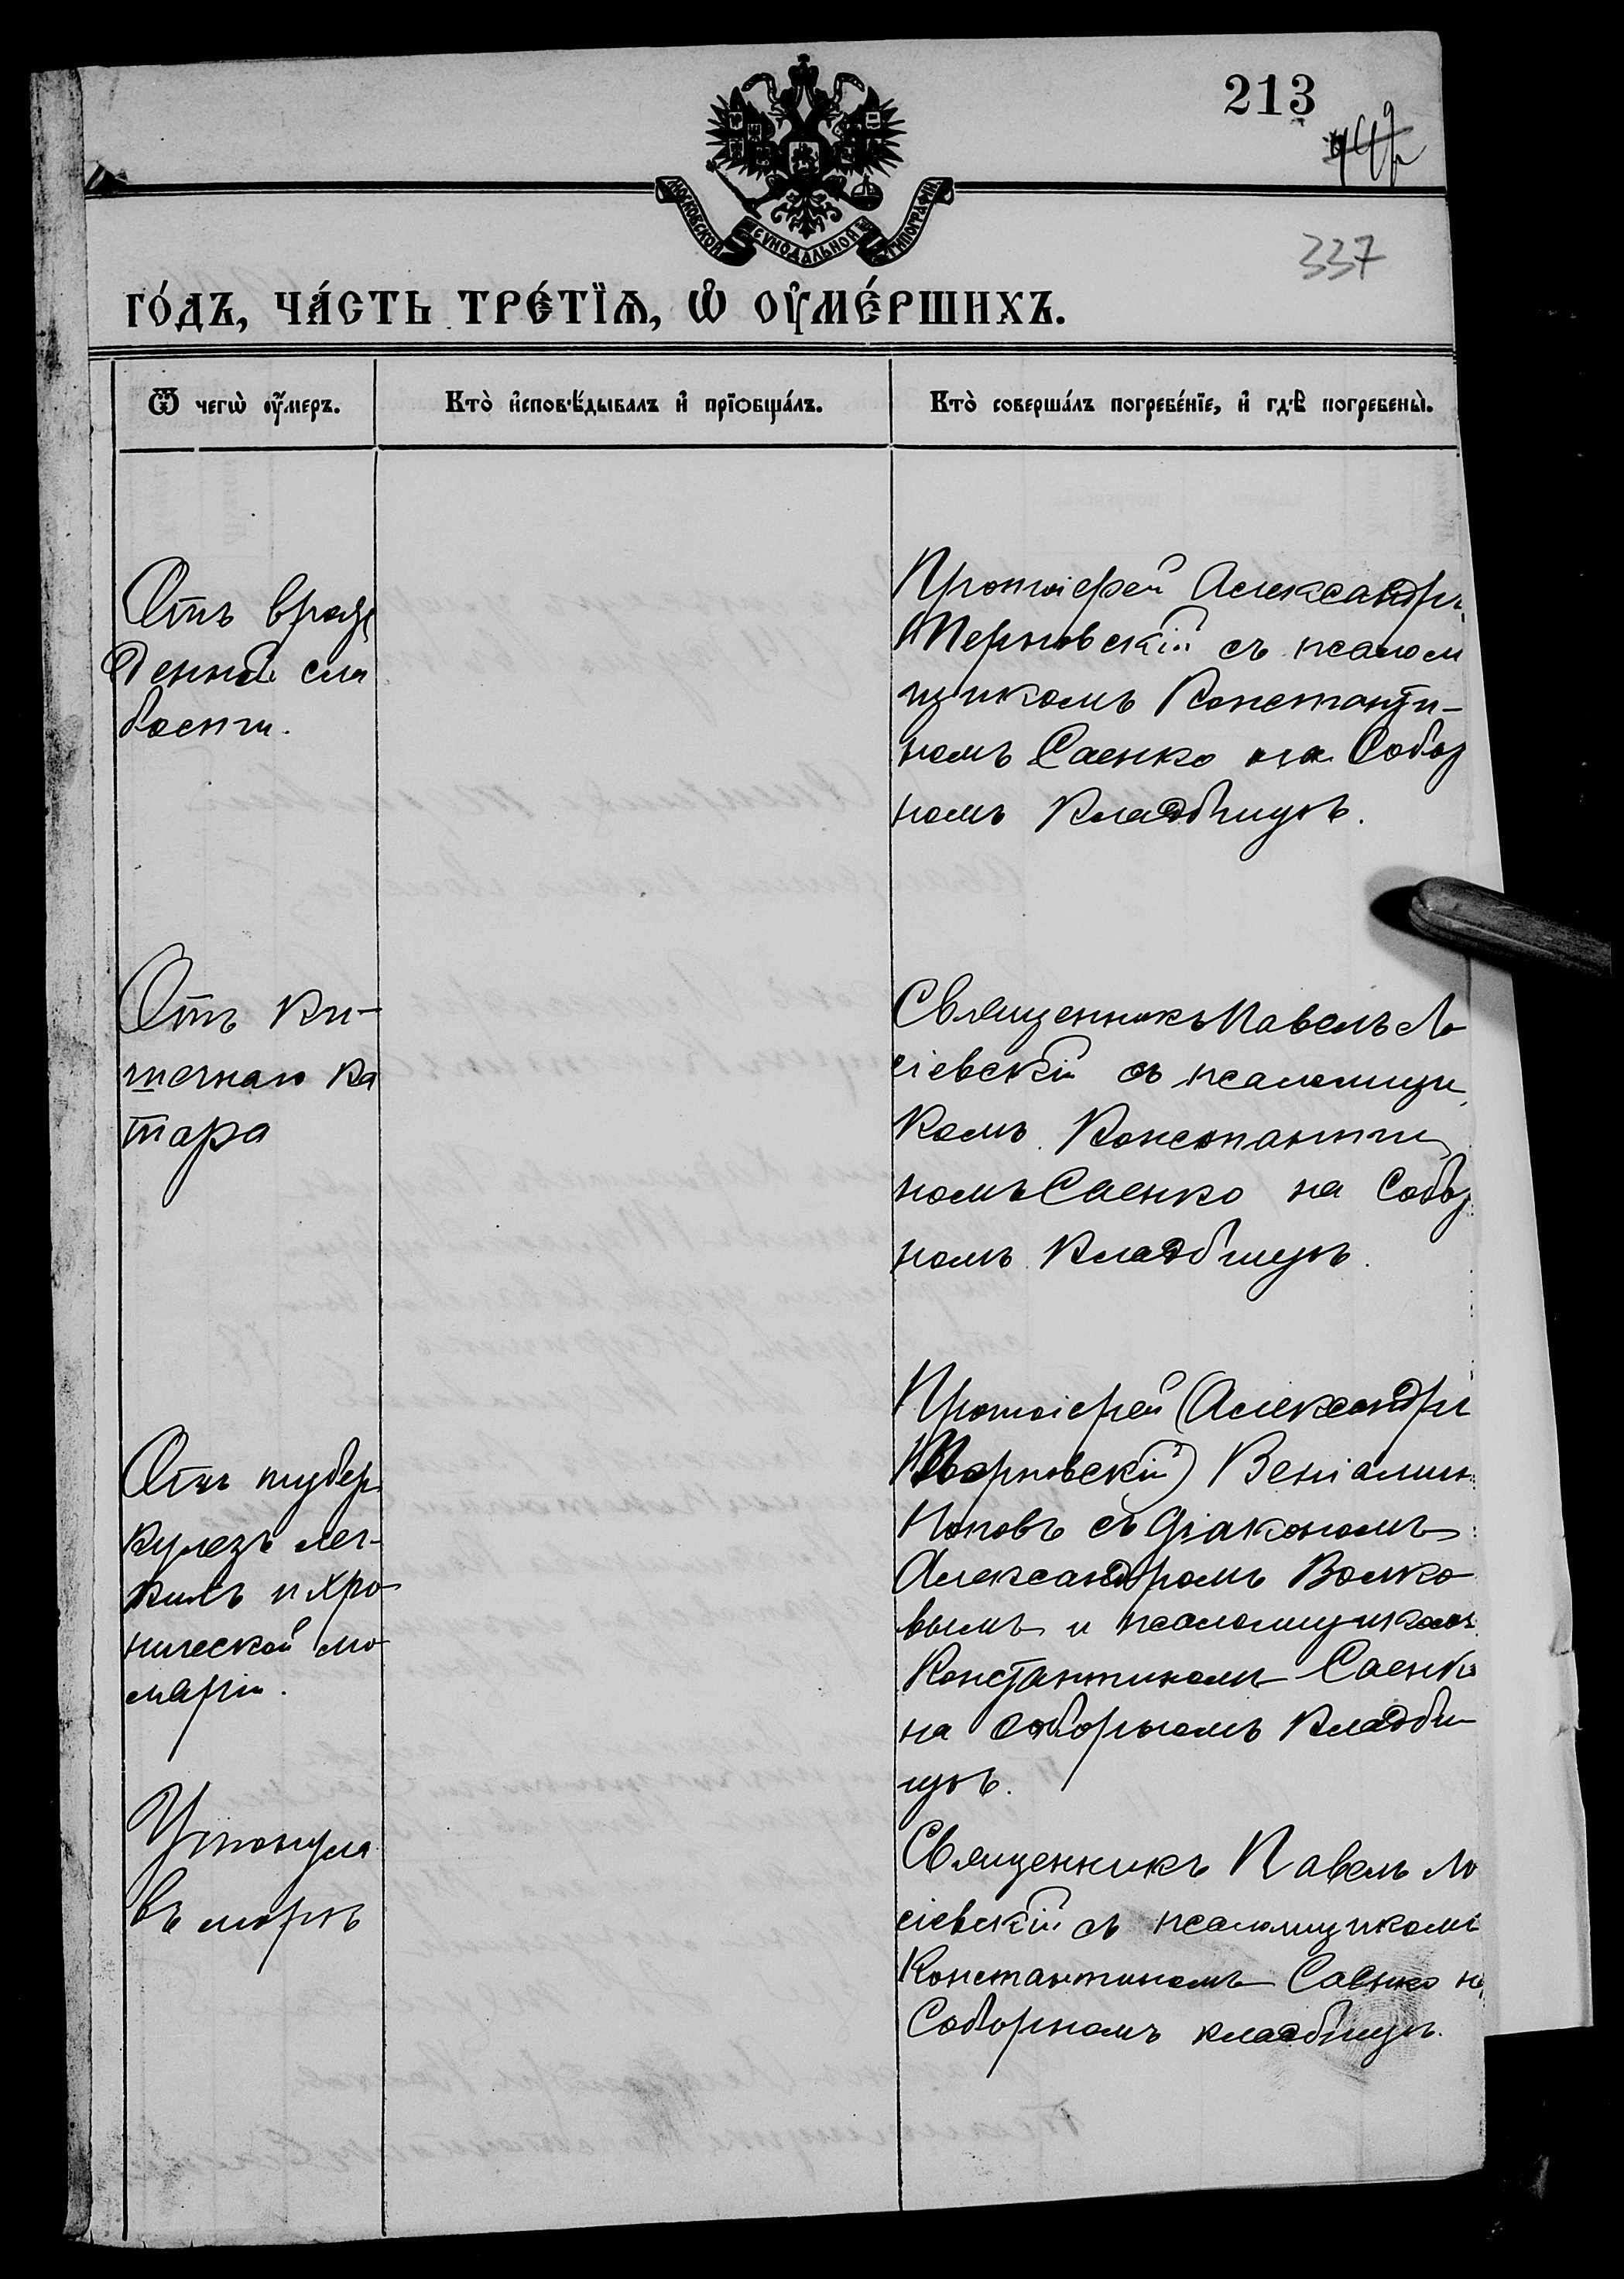 213
337
МОСКОВСКОЙ СѴНОДАЛЬНОЙ ТИПОГРАФІИ
ГО́ДЪ, ЧА́СТЬ ТРЕ́ТЇѦ, Ѡ ОУ҆МЕ́РШИХЪ.
Ѿ чегѡ̀ оу҆́меръ.
Кто̀ и҆сповѣ́дывалъ и҆ прїѻбща́лъ.
Кто̀ соверша́лъ погребе́нїе, и҆ гдѣ̀ погребены̀.
Отъ врож
денной сла
бости.
Протоіерей Александръ
Терновскій съ псалом
щикомъ Константи-
номъ Саенко на Собор
номъ Кладбищѣ.
Отъ ки-
шечнаго ка
тара
Священникъ Павелъ Ло
сіевскій съ псаломщи
комъ Константи
номъ Саенко на Собор
номъ Кладбищѣ.
Отъ тубер
кулеза лег-
кихъ и хро-
нической ма-
ляріи.
Протоіерей (Александръ
Терновскій) Веніаминъ
Поповъ съ діакономъ
Александромъ Волко
вымъ и псаломщикомъ
Константиномъ Саенко
на Соборномъ кладби
щѣ.
Утонула
въ морѣ
Священникъ Павелъ Ло
сіевскій съ псаломщикомъ
Константиномъ Саенко на
Соборномъ кладбищѣ.